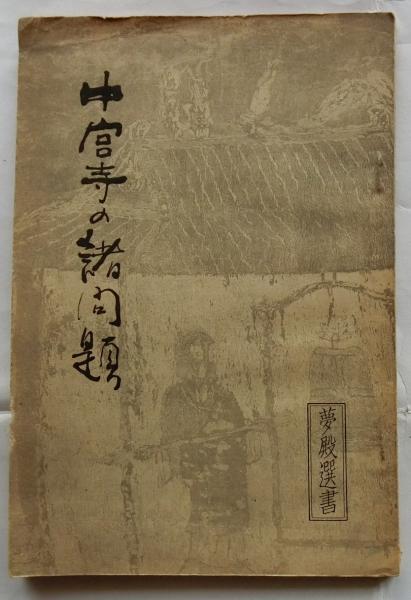 中宮寺の諸問題
夢殿選書